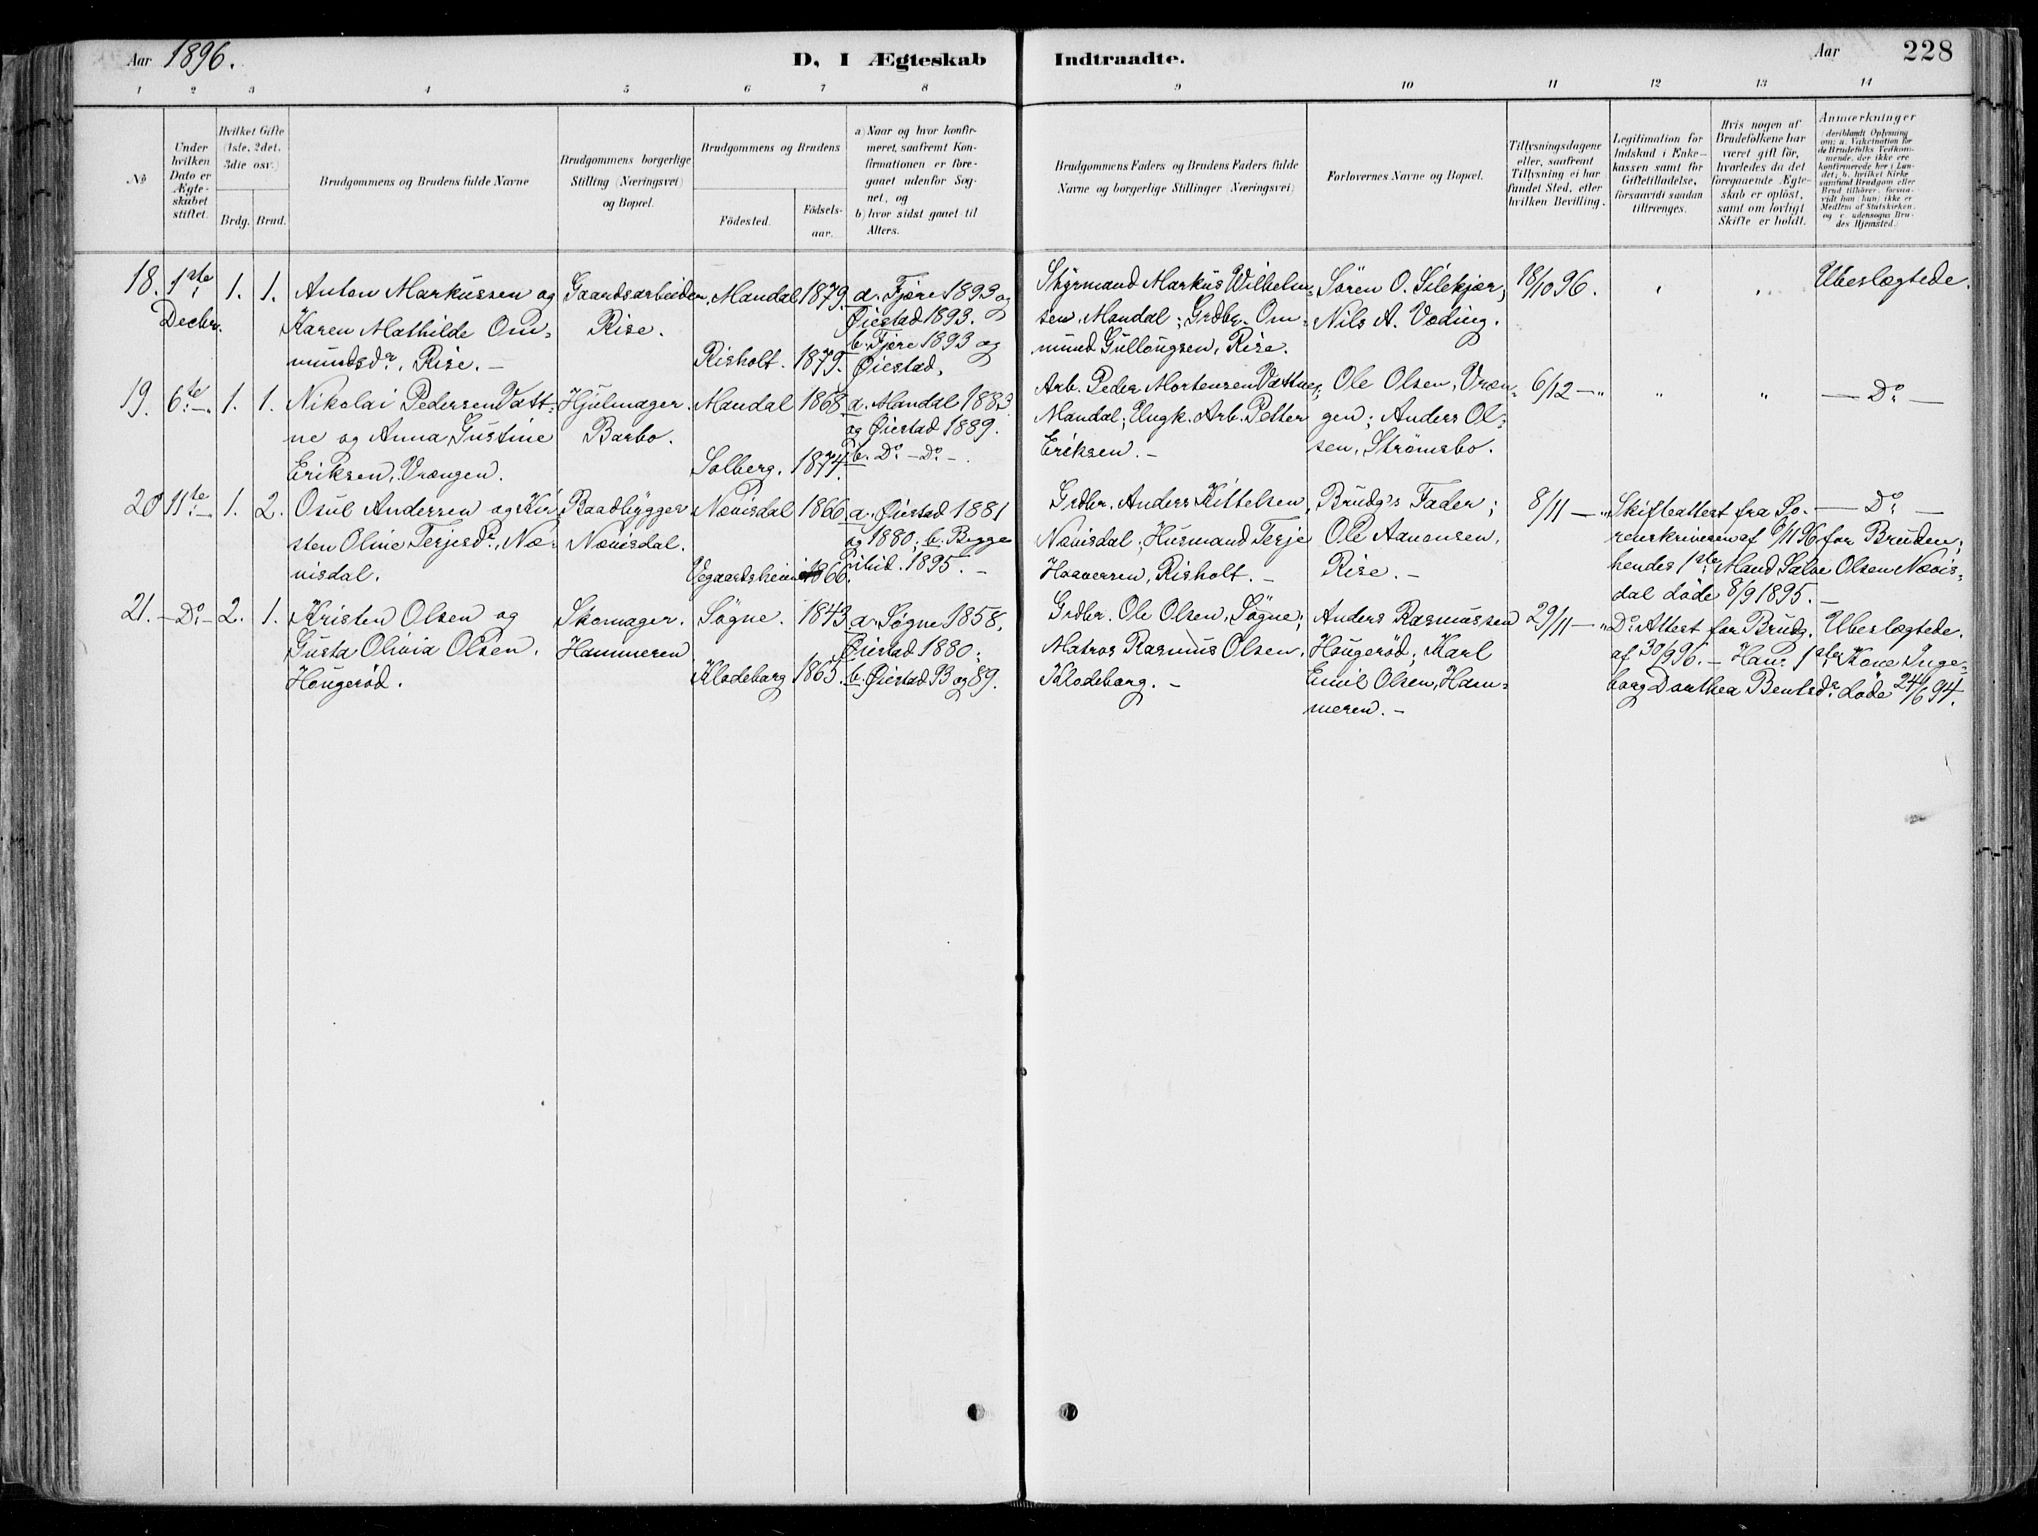 Aar 1896.
D, I Ægteskab Indtraadte.
Aar 228
1 2 3 4 5 6 7 8 9 10 11 12 13 14
No
Under hvilken Dato er Ægteskabet stiftet.
Hvilket Gifte (1ste, 2det, 3die osv.)
Brdg. Brud.
Brudgommens og Brudens fulde Navne
Brudgommens borgerlige Stilling (Næringsvei) og Bopæl.
Brudgommens og Brudens
Födested.
Födsels-aar.
a) Naar og hvor konfirmeret, saafremt Konfirmationen er foregaaet udenfor Sognet, og
b) hvor sidst gaaet til Alters.
Brudgommens Faders og Brudens Faders fulde Navne og borgerlige Stillinger (Næringsvei)
Forlovernes Navne og Bopæl.
Tillysningsdagene eller, saafremt Tillysning ei har fundet Sted, efter hvilken Bevilling.
Legitimation for Indskud i Enkekassen samt for Giftetilladelse, forsaavidt saadan tiltrænges.
Hvis nogen af Brudefolkene har været gift før, hvorledes da det foregaaende Ægteskab er oplöst, samt om lovligt Skifte er holdt.
Anmærkninger (deriblandt Oplysning om: a. Vakcination for de Brudefolks Vedkommende, der ikke ere konfirmerede her i Landet; b. hvilket Kirkesamfund Brudgom eller Brud tilhører, forsaavidt han (hun) ikke er Medlem af Statskirken, og c. udensogns Brudes Hjemsted.)
18. 1ste Decbr. 1. 1.
Anton Markussen og
Karen Mathilde Om-
mundsdr, Rise. –
Gaardsarbeider,
Rise.
Mandal 1879.
Risholt. 1879.
a. Fjære 1893 og
Øiestad 1893.
b. Fjære 1893 og
Øiestad.
Styrmand Markus Wilhelm-
sen, Mandal; Grdbr. Om-
mund Gullougsen, Rise.
Sören O. Silekjær;
Nils A. Væding.
18/10 96.
Ubeslægtede.
19. 6te – 1. 1.
Nikolai Pedersen Vatt-
ne og Anna Gustine
Eriksen, Vrængen.
Hjulmager.
Barbo.
Mandal 1868
Solberg. 1874.
a. Mandal 1883
og Øiestad 1889.
b. Do – Do –.
Arb. Peder Mortensen Vattne,
Mandal; Ungk. Arb. Petter
Eriksen. –
Ole Olsen, Vræn-
gen; Anders Ol-
sen, Strømsbo.
6/12 – "
" "
– Do –
20 11te – 1. 2.
Osul Andersen og Kir-
sten Oline Terjesdr, Næ-
visdal.
Baadbygger
Nævisdal.
Nævisdal 1866
Vegaardsheien 1866.
a. Øiestad 1881
og 1880; b. Begge
ibid. 1895. –
Grdbr. Anders Kittelsen,
Nævisdal; Husmand Terje
Haaversen, Risholt. –
Brudg's Fader;
Ole Aanonsen,
Rise. –
8/11 – "
Skifteattest fra So-
renskriveren af 6/11 96 for Bruden;
hendes 1ste Mand Salve Olsen Nævis-
dal døde 8/9 1895. –
– Do –
21. – Do – 2. 1.
Kristen Olsen og
Gusta Olivia Olsen,
Hougerød.
Skomager.
Hammeren
Søgne. 1843
Klodeborg 1865.
a. Søgne 1858,
Øiestad 1880;
b. Øiestad 93 og 89.
Grdbr. Ole Olsen, Søgne;
Matros Rasmus Olsen,
Klodeborg. –
Anders Rasmussen
Hougerød; Karl
Emil Olsen, Ham-
meren. –
29/11 – "
Do Attest for Brudg. Ubeslægtede.
af 30/9 96. – Hans 1ste Kone Inge-
borg Dorthea Bentsdr. døde 24/6 94.